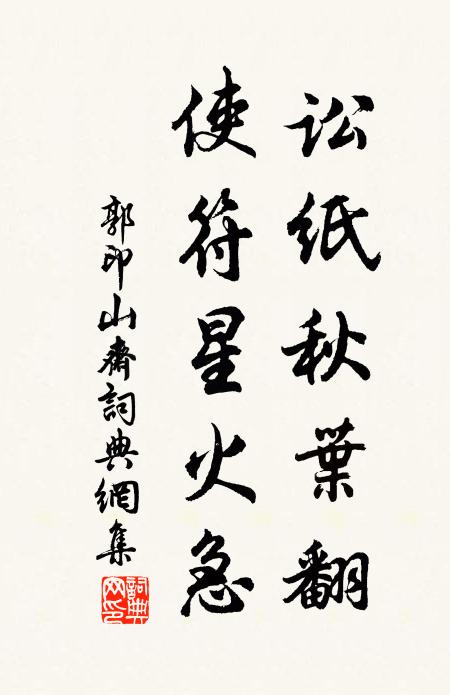 訟紙秋葉翻
使符星火急
郭印山齋詞典網集
詞典網印